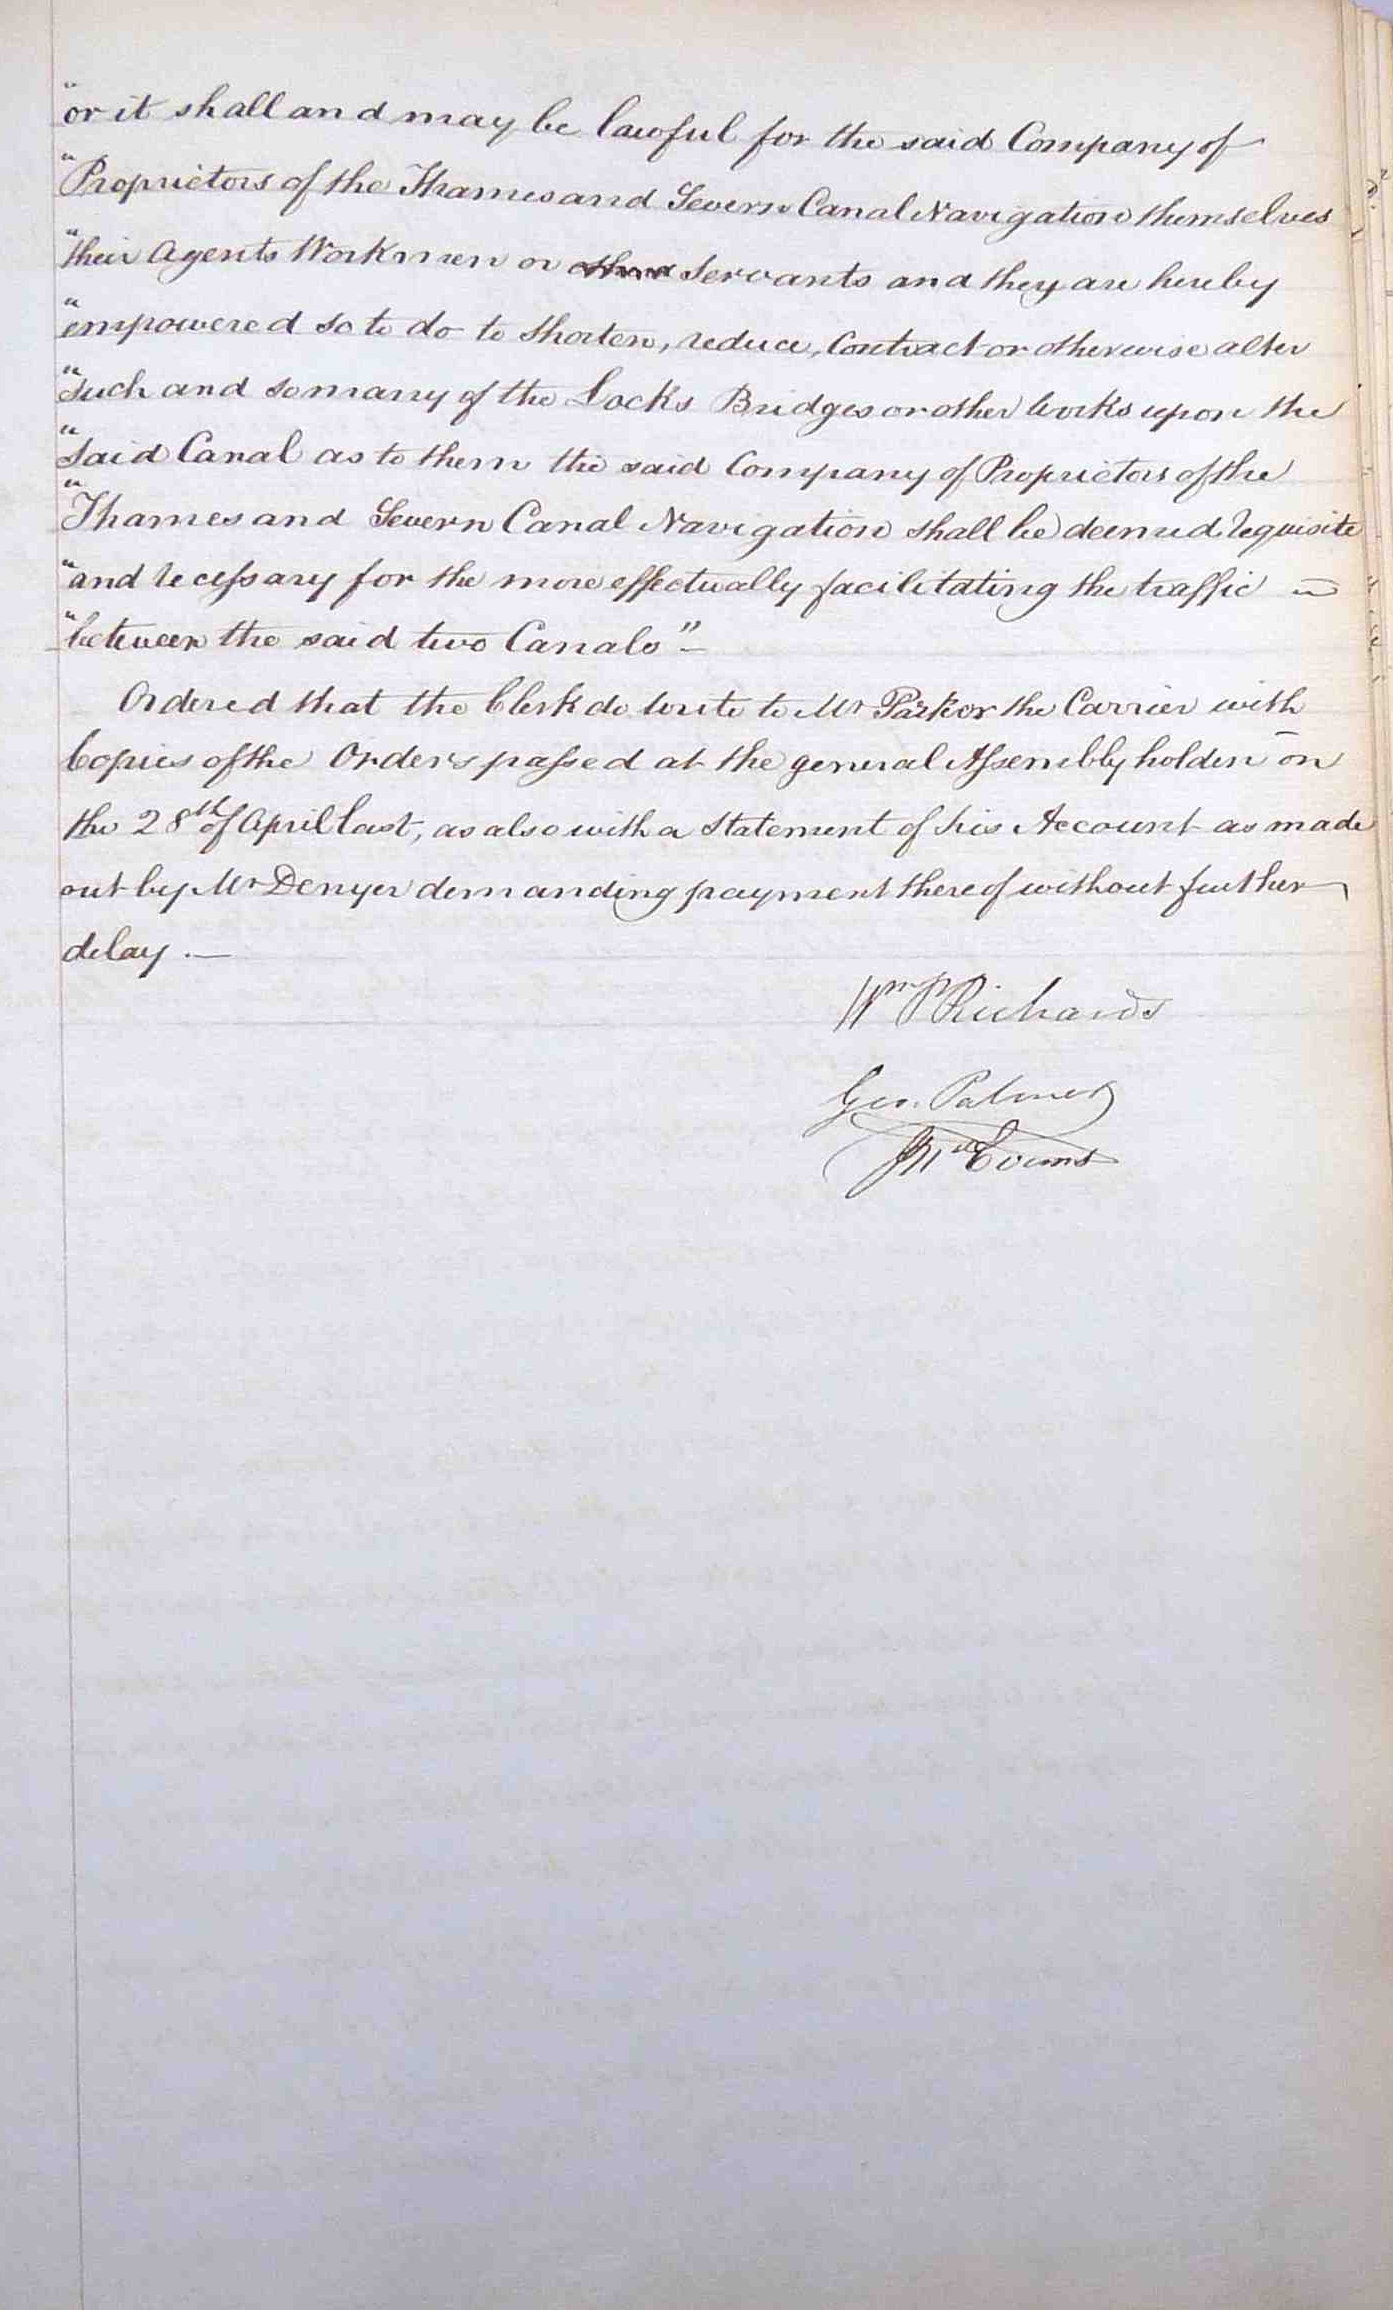 "or it shall and may be lawful for the said Company of
"Proprietors of the Thames and Severn Canal Navigation themselves
"their Agents Workmen or Servants and they are hereby
"empowered so to do to shorten, reduce, Contract or otherwise alter
"such and so many of the Locks Bridges or other Works upon the
"said Canal as to them the said Company of Proprietors of the
"Thames and Severn Canal Navigation shall be deemed requisite
"and necessary for the more effectually facilitating the traffic –
"between the said two Canals" –
Ordered that the Clerk do write to Mr Parker the Carrier with
Copies of the Orders passed at the general Assembly holden on
the 28th of April last, as also with a Statement of his Account as made
out by Mr Denyer demanding payment thereof without further
delay. —
Wm P Richards
Geo. Palmer
Evans